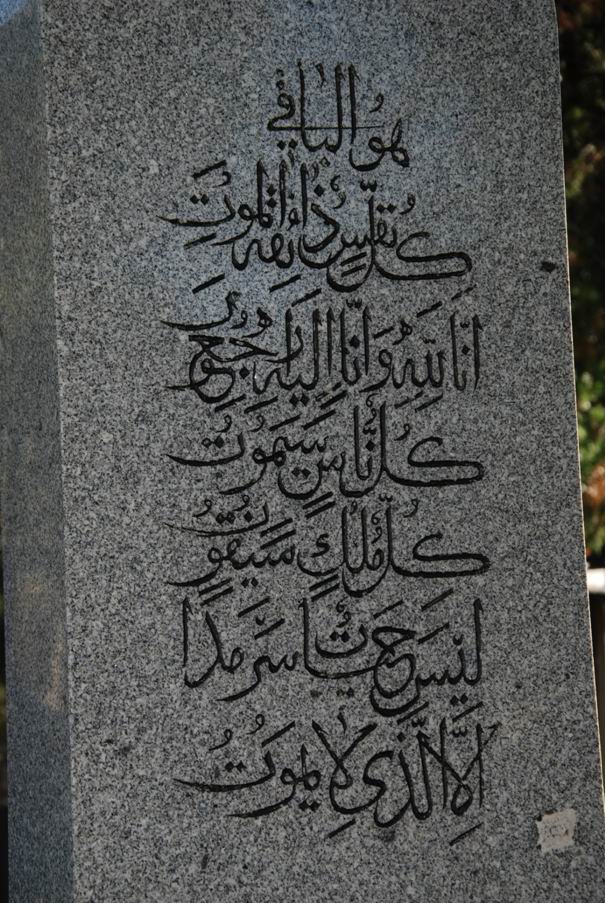 هو الباقي
كُلُّ نَفْسٍ ذَائِقَةُ الْمَوْتِ
اِنَّا لِلّٰهِ وَاِنَّا اِلَيْهِ رَاجِعُونَ
كُلُّنَا سَيَمُوتُ
كُلُّ مُلْكٍ سَيَفُوتُ
لَيْسَ حَيَاتًا سَرْمَدًا
اِلَّا الَّذِى لَا يَمُوتُ